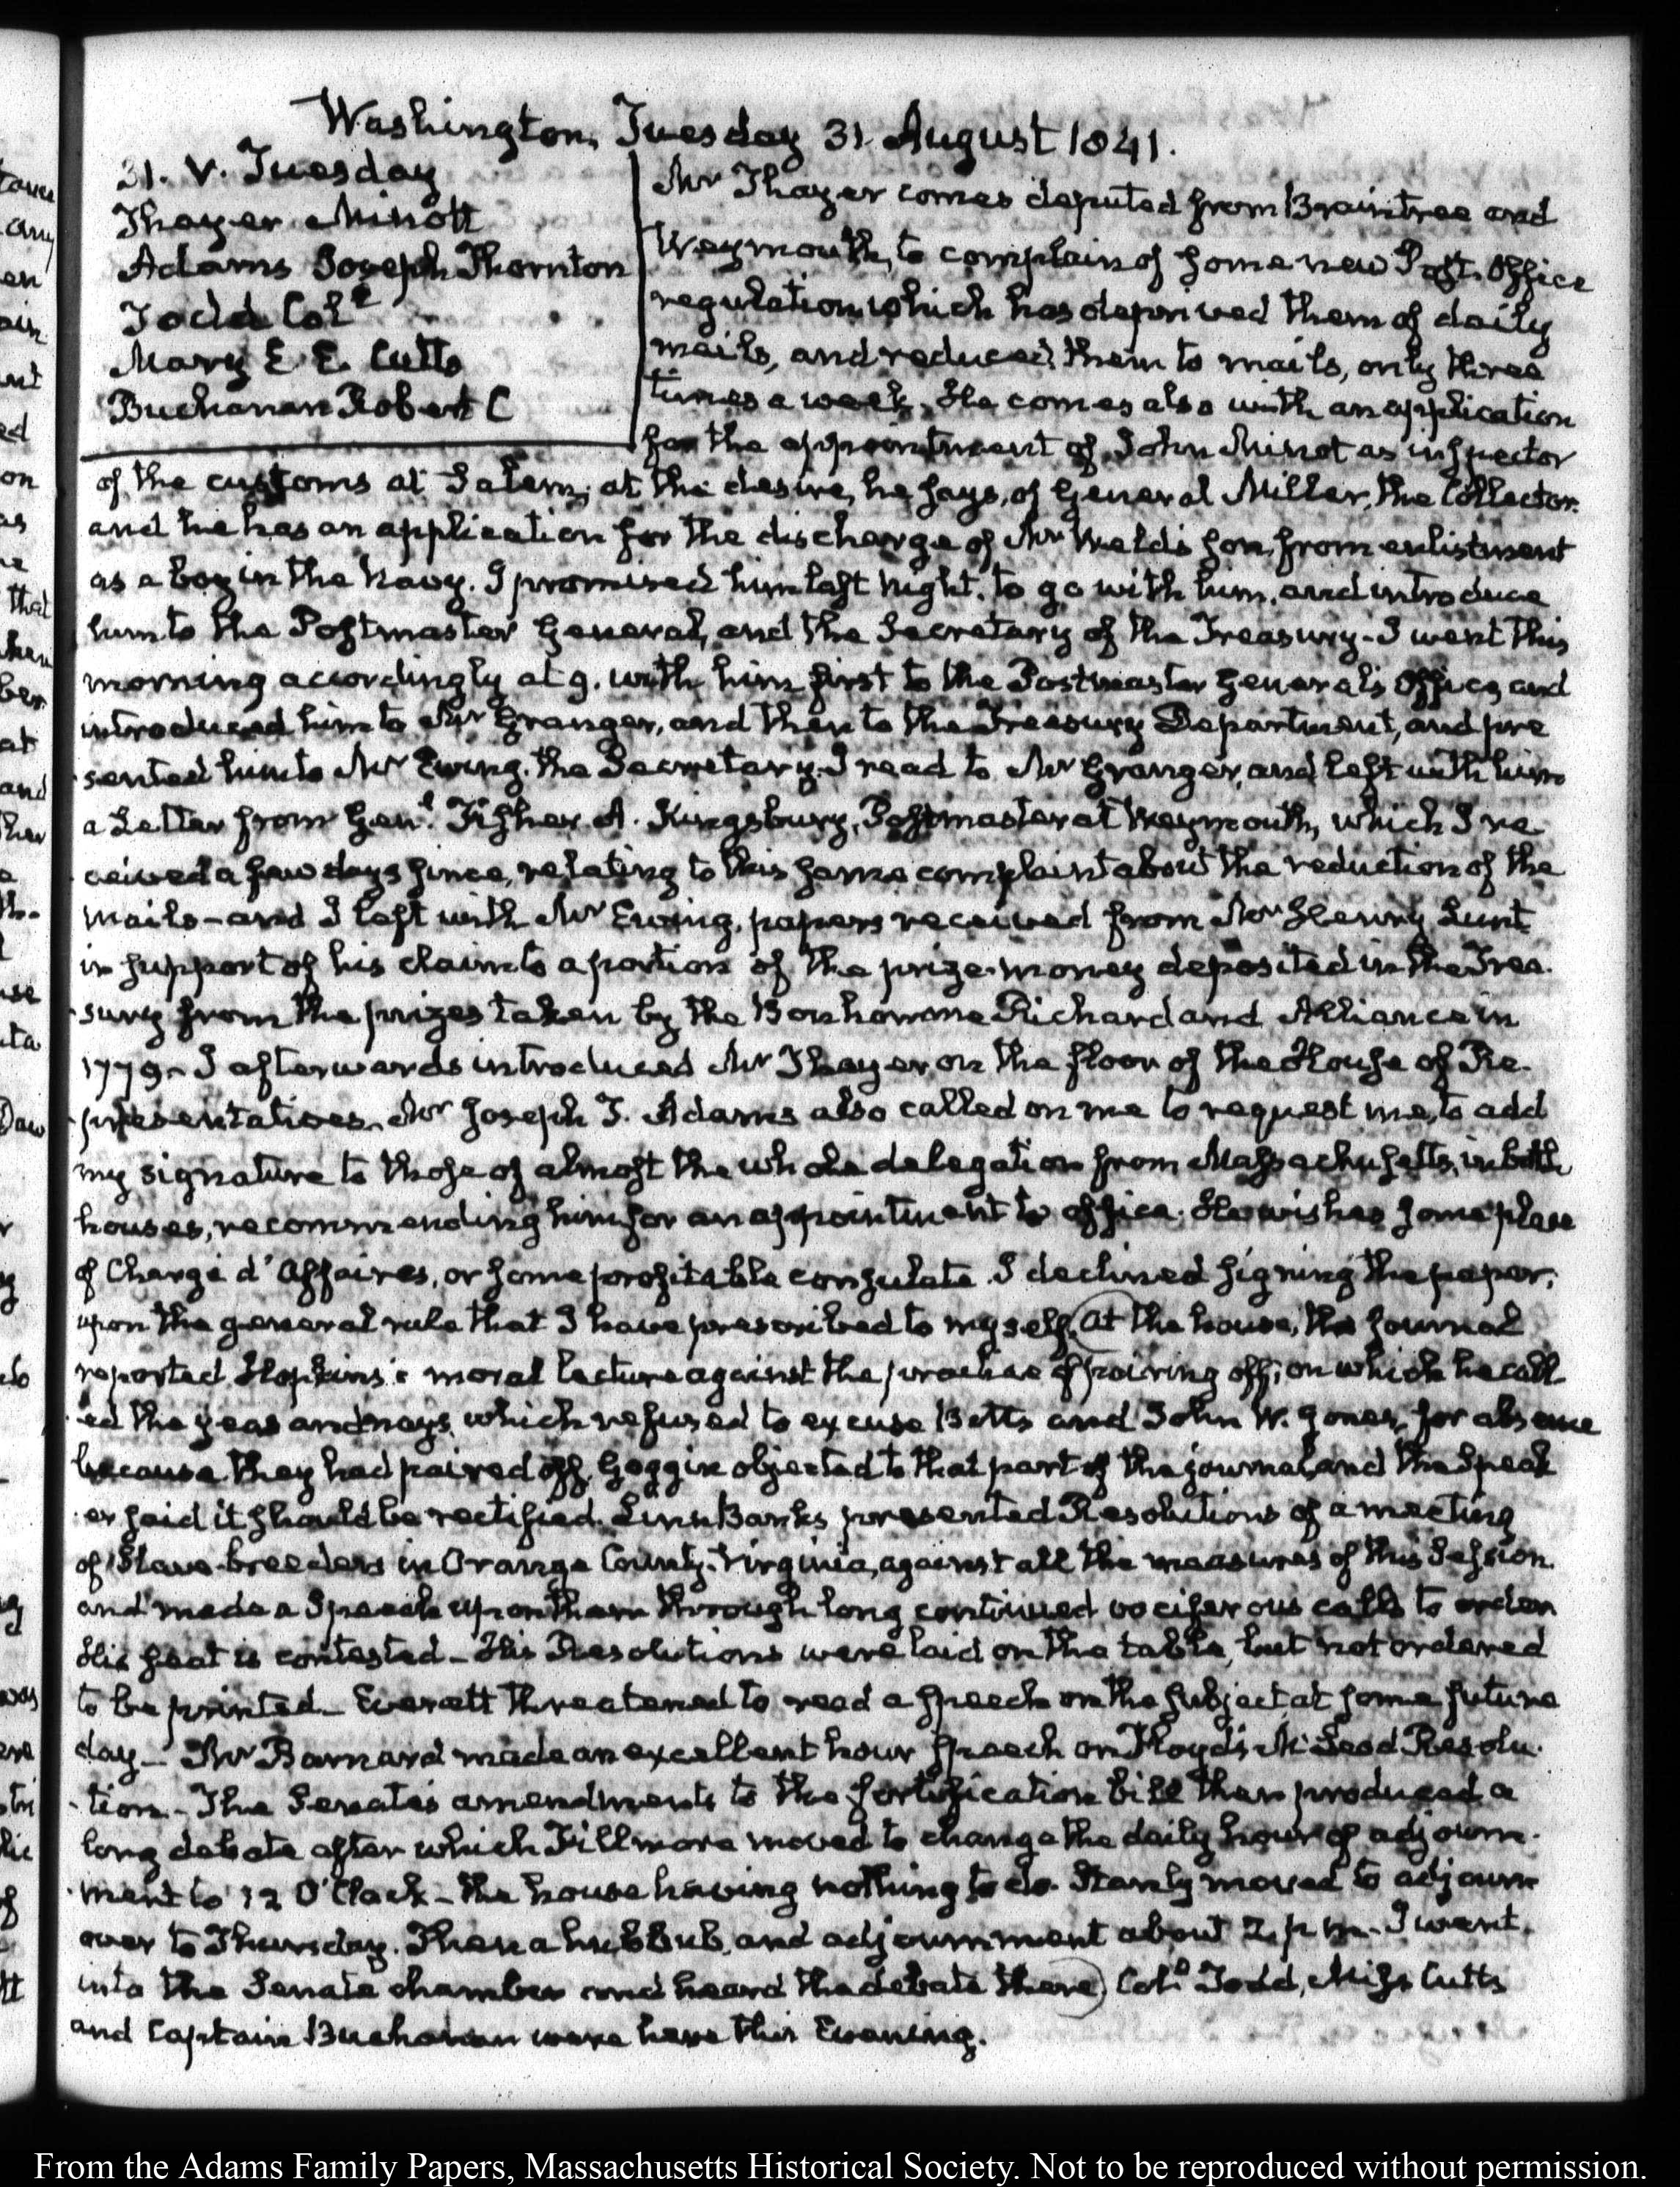 Washington, Tuesday 31 August 1841.
31. V. Tuesday
Thayer Minott
Adams Joseph Thornton
Todd Col.
Mary E. E. Cutts
Buchanan Robert C
Mr Thayer comes deputed from Braintree and
Weymouth, to complain of some new Post. Office
regulation which has deprived them of daily
mails, and reduced them to mails, only three
times a week. He comes also with an application
for the appointment of John Minot as inspector
of the customs at Salem, at the desire, he says, of General Miller, the Collector.
and he has an application for the discharge of Mr Weld's son, from enlistment
as a boy in the Navy. I promised him last Night, to go with him, and introduce
him to the Postmaster General, and the Secretary of the Treasury. I went this
morning accordingly at 9. with him first to the Postmaster General's Office, and
introduced him to Mr Granger, and then to the Treasury Department, and pre
sented him to Mr Ewing, the Secretary. I read to Mr Granger, and left with him
a Letter from Genl. Fisher A. Kingsbury, Postmaster at Weymouth, which I re
ceived a few days since, relating to this same complaint about the reduction of the
Mails - and I left with Mr Ewing, papers received from Mr Henry Lunt
in support of his claim to a portion of the prize-money deposited in the Trea-
sury from the prizes taken by the Bonhomme Richard and Alliance in
1779. I afterwards introduced Mr Thayer on the floor of the House of Re-
presentatives. Mr Joseph T. Adams also called on me to request me, to add
my signature to those of almost the whole delegation from Massachusetts, in both
houses, recommending him for an appointment to office. He wishes some place
of Chargé d'Affaires, or some profitable consulate. I declined signing the paper,
upon the general rule that I have prescribed to myself. (At the house, the Journal
reported Hopkins's moral lecture against the practice of pairing off, on which he call-
ed the yeas and nays, which refused to excuse Botts and John W. Jones, for absence
because they had paired off. Goggin objected to that part of the journal, and the Speak
er said it should be rectified. Linn Banks presented Resolutions of a meeting
of Slave-breeders in Orange County. Virginia, against all the measures of this Session.
and made a Speech upon them through long continued vociferous calls to order
His seat is contested - His Resolutions were laid on the table, but not ordered
to be printed - Everett threatened to read a speech on the subject at some future
day - Mr Barnard made an excellent hour speech on Floyd's McLeod Resolu-
tion - The Senate's amendments to the fortification bill then produced a
long debate after which Fillmore moved to change the daily hour of adjourn-
ment to 12 O'Clock - the house having nothing to do. Stanly moved to adjourn
over to Thursday. Then a hubbub, and adjournment about 2. p m - I went
into the Senate chamber and heard the debate there) Col. Todd, Miss Cutts
and Captain Buchanan were here this Evening.
From the Adams Family Papers, Massachusetts Historical Society. Not to be reproduced without permission.